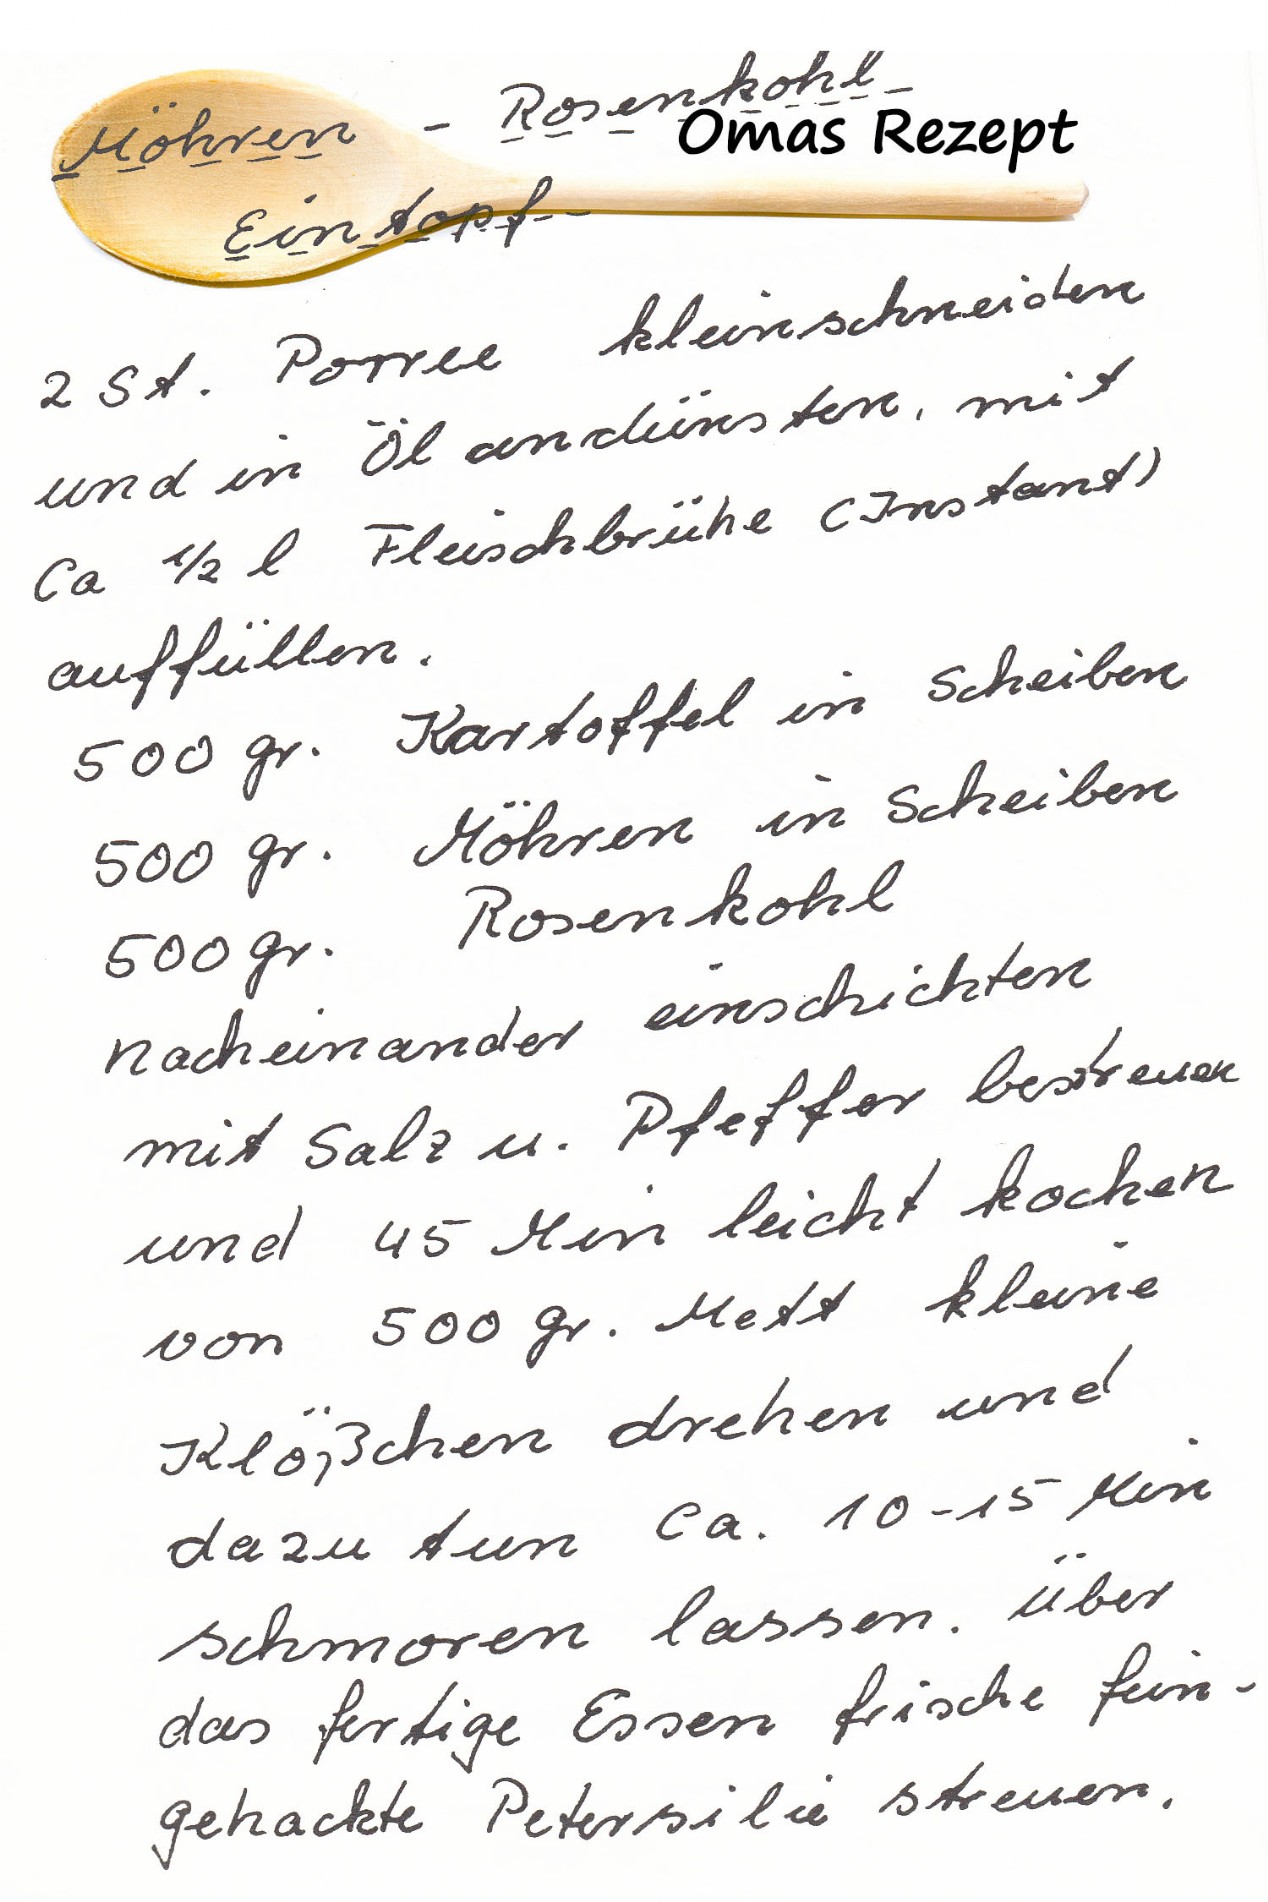 Möhren - Rosenkohl
Omas Rezept
Eintopf
2 St. Porree kleinschneiden
und in Öl andünsten, mit
Ca 1/2 l Fleischbrühe (Instant)
auffüllen.
500 gr. Kartoffel in Scheiben
500 gr. Möhren in Scheiben
500 gr. Rosenkohl
nacheinander einschichten
mit Salz u. Pfeffer bestreuen
und 45 Min leicht kochen
von 500 gr. Mett kleine
Klößchen drehen und
dazu tun Ca. 10-15 Min
schmoren lassen. Über
das fertige Essen frische fein-
gehackte Petersilie streuen.